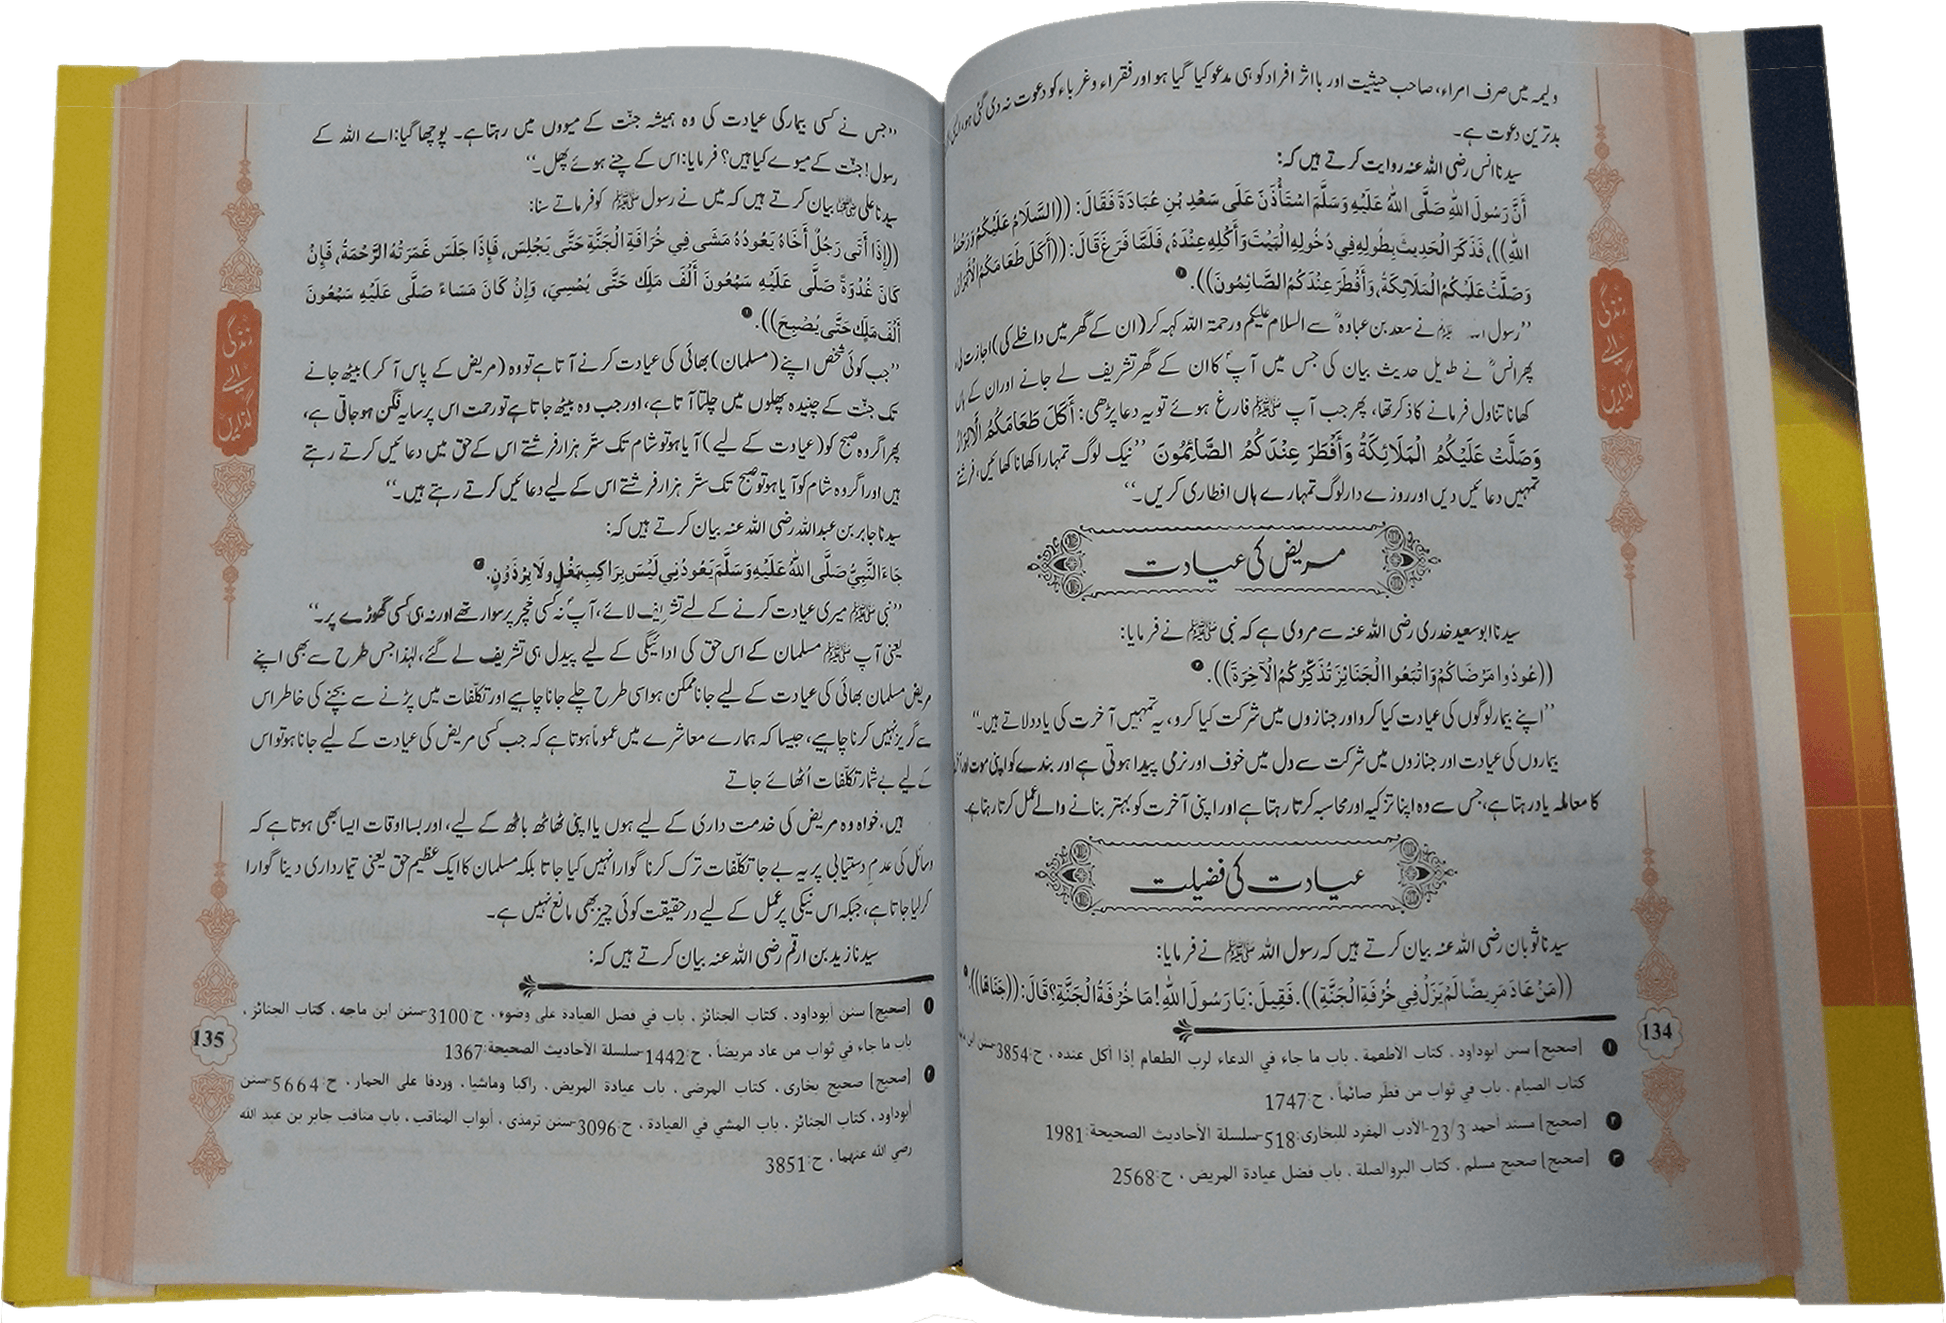 ولیمہ میں صرف امراء، صاحب حیثیت اور بااثر افراد کو ہی مدعو کیا گیا ہو اور فقراء وغرباء کو دعوت نہ دی گئی ہو،
بدترین دعوت ہے۔
سیدنا انس رضی اللہ عنہ روایت کرتے ہیں کہ:
أَنَّ رَسُولَ اللهِ صَلَّى اللهُ عَلَيْهِ وَسَلَّمَ اسْتَأْذَنَ عَلَى سَعْدِ بْنِ عُبَادَةَ فَقَالَ: ((السَّلَامُ عَلَيْكُمْ وَرَحْمَةُ
اللهِ))، فَذَكَرَ الْحَدِيثَ بِطُولِهِ فِي دُخُولِهِ الْبَيْتَ وَأَكْلِهِ عِنْدَهُ، فَلَمَّا فَرَغَ قَالَ: ((أَكَلَ طَعَامَكُمُ الْأَبْرَارُ،
وَصَلَّتْ عَلَيْكُمُ الْمَلَائِكَةُ، وَأَفْطَرَ عِنْدَكُمُ الصَّائِمُونَ)).①
’’رسول اللہ ﷺ نے سعد بن عبادہؓ سے السلام علیکم ورحمۃ اللہ کہہ کر (ان کے گھر میں داخلے کی) اجازت لی،
پھر انسؓ نے طویل حدیث بیان کی جس میں آپؐ کا ان کے گھر تشریف لے جانے اور ان کے ہاں
کھانا تناول فرمانے کا ذکر تھا، پھر جب آپ ﷺ فارغ ہوئے تو یہ دعا پڑھی: أَكَلَ طَعَامَكُمُ الْأَبْرَارُ
وَصَلَّتْ عَلَيْكُمُ الْمَلَائِكَةُ وَأَفْطَرَ عِنْدَكُمُ الصَّائِمُونَ ’’نیک لوگ تمہارا کھانا کھائیں، فرشتے
تمہیں دعائیں دیں اور روزے دار لوگ تمہارے ہاں افطاری کریں۔‘‘
مریض کی عیادت
سیدنا ابو سعید خدری رضی اللہ عنہ سے مروی ہے کہ نبی ﷺ نے فرمایا:
((عُودُوا مَرْضَاكُمْ وَاتْبَعُوا الْجَنَائِزَ تُذَكِّرُكُمُ الْآخِرَةَ)).②
’’اپنے بیمار لوگوں کی عیادت کیا کرو اور جنازوں میں شرکت کیا کرو، یہ تمہیں آخرت کی یاد دلاتے ہیں۔‘‘
بیماروں کی عیادت اور جنازوں میں شرکت سے دل میں خوف اور نرمی پیدا ہوتی ہے اور بندے کو اپنی موت اور
کا معاملہ یاد رہتا ہے، جس سے وہ اپنا تزکیہ اور محاسبہ کرتا رہتا ہے اور اپنی آخرت کو بہتر بنانے والے عمل کرتا رہتا ہے۔
عیادت کی فضیلت
سیدنا ثوبان رضی اللہ عنہ بیان کرتے ہیں کہ رسول اللہ ﷺ نے فرمایا:
((مَنْ عَادَ مَرِيضًا لَمْ يَزَلْ فِي خُرْفَةِ الْجَنَّةِ)). فَقِيلَ: يَا رَسُولَ اللهِ! مَا خُرْفَةُ الْجَنَّةِ؟ قَالَ: ((جَنَاهَا)).③
① [صحیح] سنن ابوداود، كتاب الأطعمة، باب ما جاء في الدعاء لرب الطعام إذا أكل عنده، ح:3854-سنن ابن
كتاب الصيام، باب في ثواب من فطّر صائماً، ح:1747
② [صحیح] مسند أحمد:23/3-الأدب المفرد للبخاری:518-سلسلة الأحاديث الصحيحة:1981
③ [صحیح] صحیح مسلم، كتاب البر والصلة، باب فضل عيادة المريض، ح:2568
134
زندگی
ایسے
گذاریں
’’جس نے کسی بیمار کی عیادت کی وہ ہمیشہ جنّت کے میووں میں رہتا ہے۔ پوچھا گیا: اے اللہ کے
رسول! جنّت کے میوے کیا ہیں؟ فرمایا: اس کے چنے ہوئے پھل۔‘‘
سیدنا علی ؓ بیان کرتے ہیں کہ میں نے رسول ﷺ کو فرماتے سنا:
((إِذَا أَتَى رَجُلٌ أَخَاهُ يَعُودُهُ مَشَى فِي خُرَافَةِ الْجَنَّةِ حَتَّى يَجْلِسَ، فَإِذَا جَلَسَ غَمَرَتْهُ الرَّحْمَةُ، فَإِنْ
كَانَ غُدْوَةً صَلَّى عَلَيْهِ سَبْعُونَ أَلْفَ مَلَكٍ حَتَّى يُمْسِيَ، وَإِنْ كَانَ مَسَاءً صَلَّى عَلَيْهِ سَبْعُونَ
أَلْفَ مَلَكٍ حَتَّى يُصْبِحَ)).①
’’جب کوئی شخص اپنے (مسلمان) بھائی کی عیادت کرنے آتا ہے تو وہ (مریض کے پاس آ کر) بیٹھ جانے
تک جنّت کے چنیدہ پھلوں میں چلتا آتا ہے، اور جب وہ بیٹھ جاتا ہے تو رحمت اس پر سایہ فگن ہو جاتی ہے،
پھر اگر وہ صبح کو (عیادت کے لیے) آیا ہو تو شام تک ستّر ہزار فرشتے اس کے حق میں دعائیں کرتے رہتے
ہیں اور اگر وہ شام کو آیا ہو تو صبح تک ستّر ہزار فرشتے اس کے لیے دعائیں کرتے رہتے ہیں۔‘‘
سیدنا جابر بن عبد اللہ رضی اللہ عنہ بیان کرتے ہیں کہ:
جَاءَ النَّبِيُّ صَلَّى اللهُ عَلَيْهِ وَسَلَّمَ يَعُودُنِي لَيْسَ بِرَاكِبِ بَغْلٍ وَلَا بِرْذَوْنٍ.②
’’نبی ﷺ میری عیادت کرنے کے لیے تشریف لائے، آپؐ نہ کسی خچر پر سوار تھے اور نہ ہی کسی گھوڑے پر۔‘‘
یعنی آپ ﷺ مسلمان کے اس حق کی ادائیگی کے لیے پیدل ہی تشریف لے گئے، لہٰذا جس طرح سے بھی اپنے
مریض مسلمان بھائی کی عیادت کے لیے جانا ممکن ہو اسی طرح چلے جانا چاہیے اور تکلّفات میں پڑنے سے بچنے کی خاطر اس
سے گریز نہیں کرنا چاہیے، جیسا کہ ہمارے معاشرے میں عموماً ہوتا ہے کہ جب کسی مریض کی عیادت کے لیے جانا ہو تو اس
کے لیے بے شمار تکلّفات اُٹھائے جاتے
ہیں، خواہ وہ مریض کی خدمت داری کے لیے ہوں یا اپنی ٹھاٹھ باٹھ کے لیے، اور بسا اوقات ایسا بھی ہوتا ہے کہ
وسائل کی عدم دستیابی پر یہ بے جا تکلّفات ترک کرنا گوارا نہیں کیا جاتا بلکہ مسلمان کا ایک عظیم حق یعنی تیمارداری دینا گوارا
کر لیا جاتا ہے، جبکہ اس نیکی پر عمل کے لیے درحقیقت کوئی چیز بھی مانع نہیں ہے۔
سیدنا زید بن ارقم رضی اللہ عنہ بیان کرتے ہیں کہ:
① [صحیح] سنن أبوداود، كتاب الجنائز، باب في فضل العيادة على وضوء، ح:3100-سنن ابن ماجه، كتاب الجنائز،
باب ما جاء في ثواب من عاد مريضاً، ح:1442-سلسلة الأحاديث الصحيحة:1367
② [صحیح] صحیح بخاری، كتاب المرضى، باب عيادة المريض، راكبا وماشيا، وردفا على الحمار، ح:5664-سنن
أبوداود، كتاب الجنائز، باب المشي في العيادة، ح:3096-سنن ترمذی، أبواب المناقب، باب مناقب جابر بن عبد الله
رضي الله عنهما، ح:3851
135
زندگی
ایسے
گذاریں